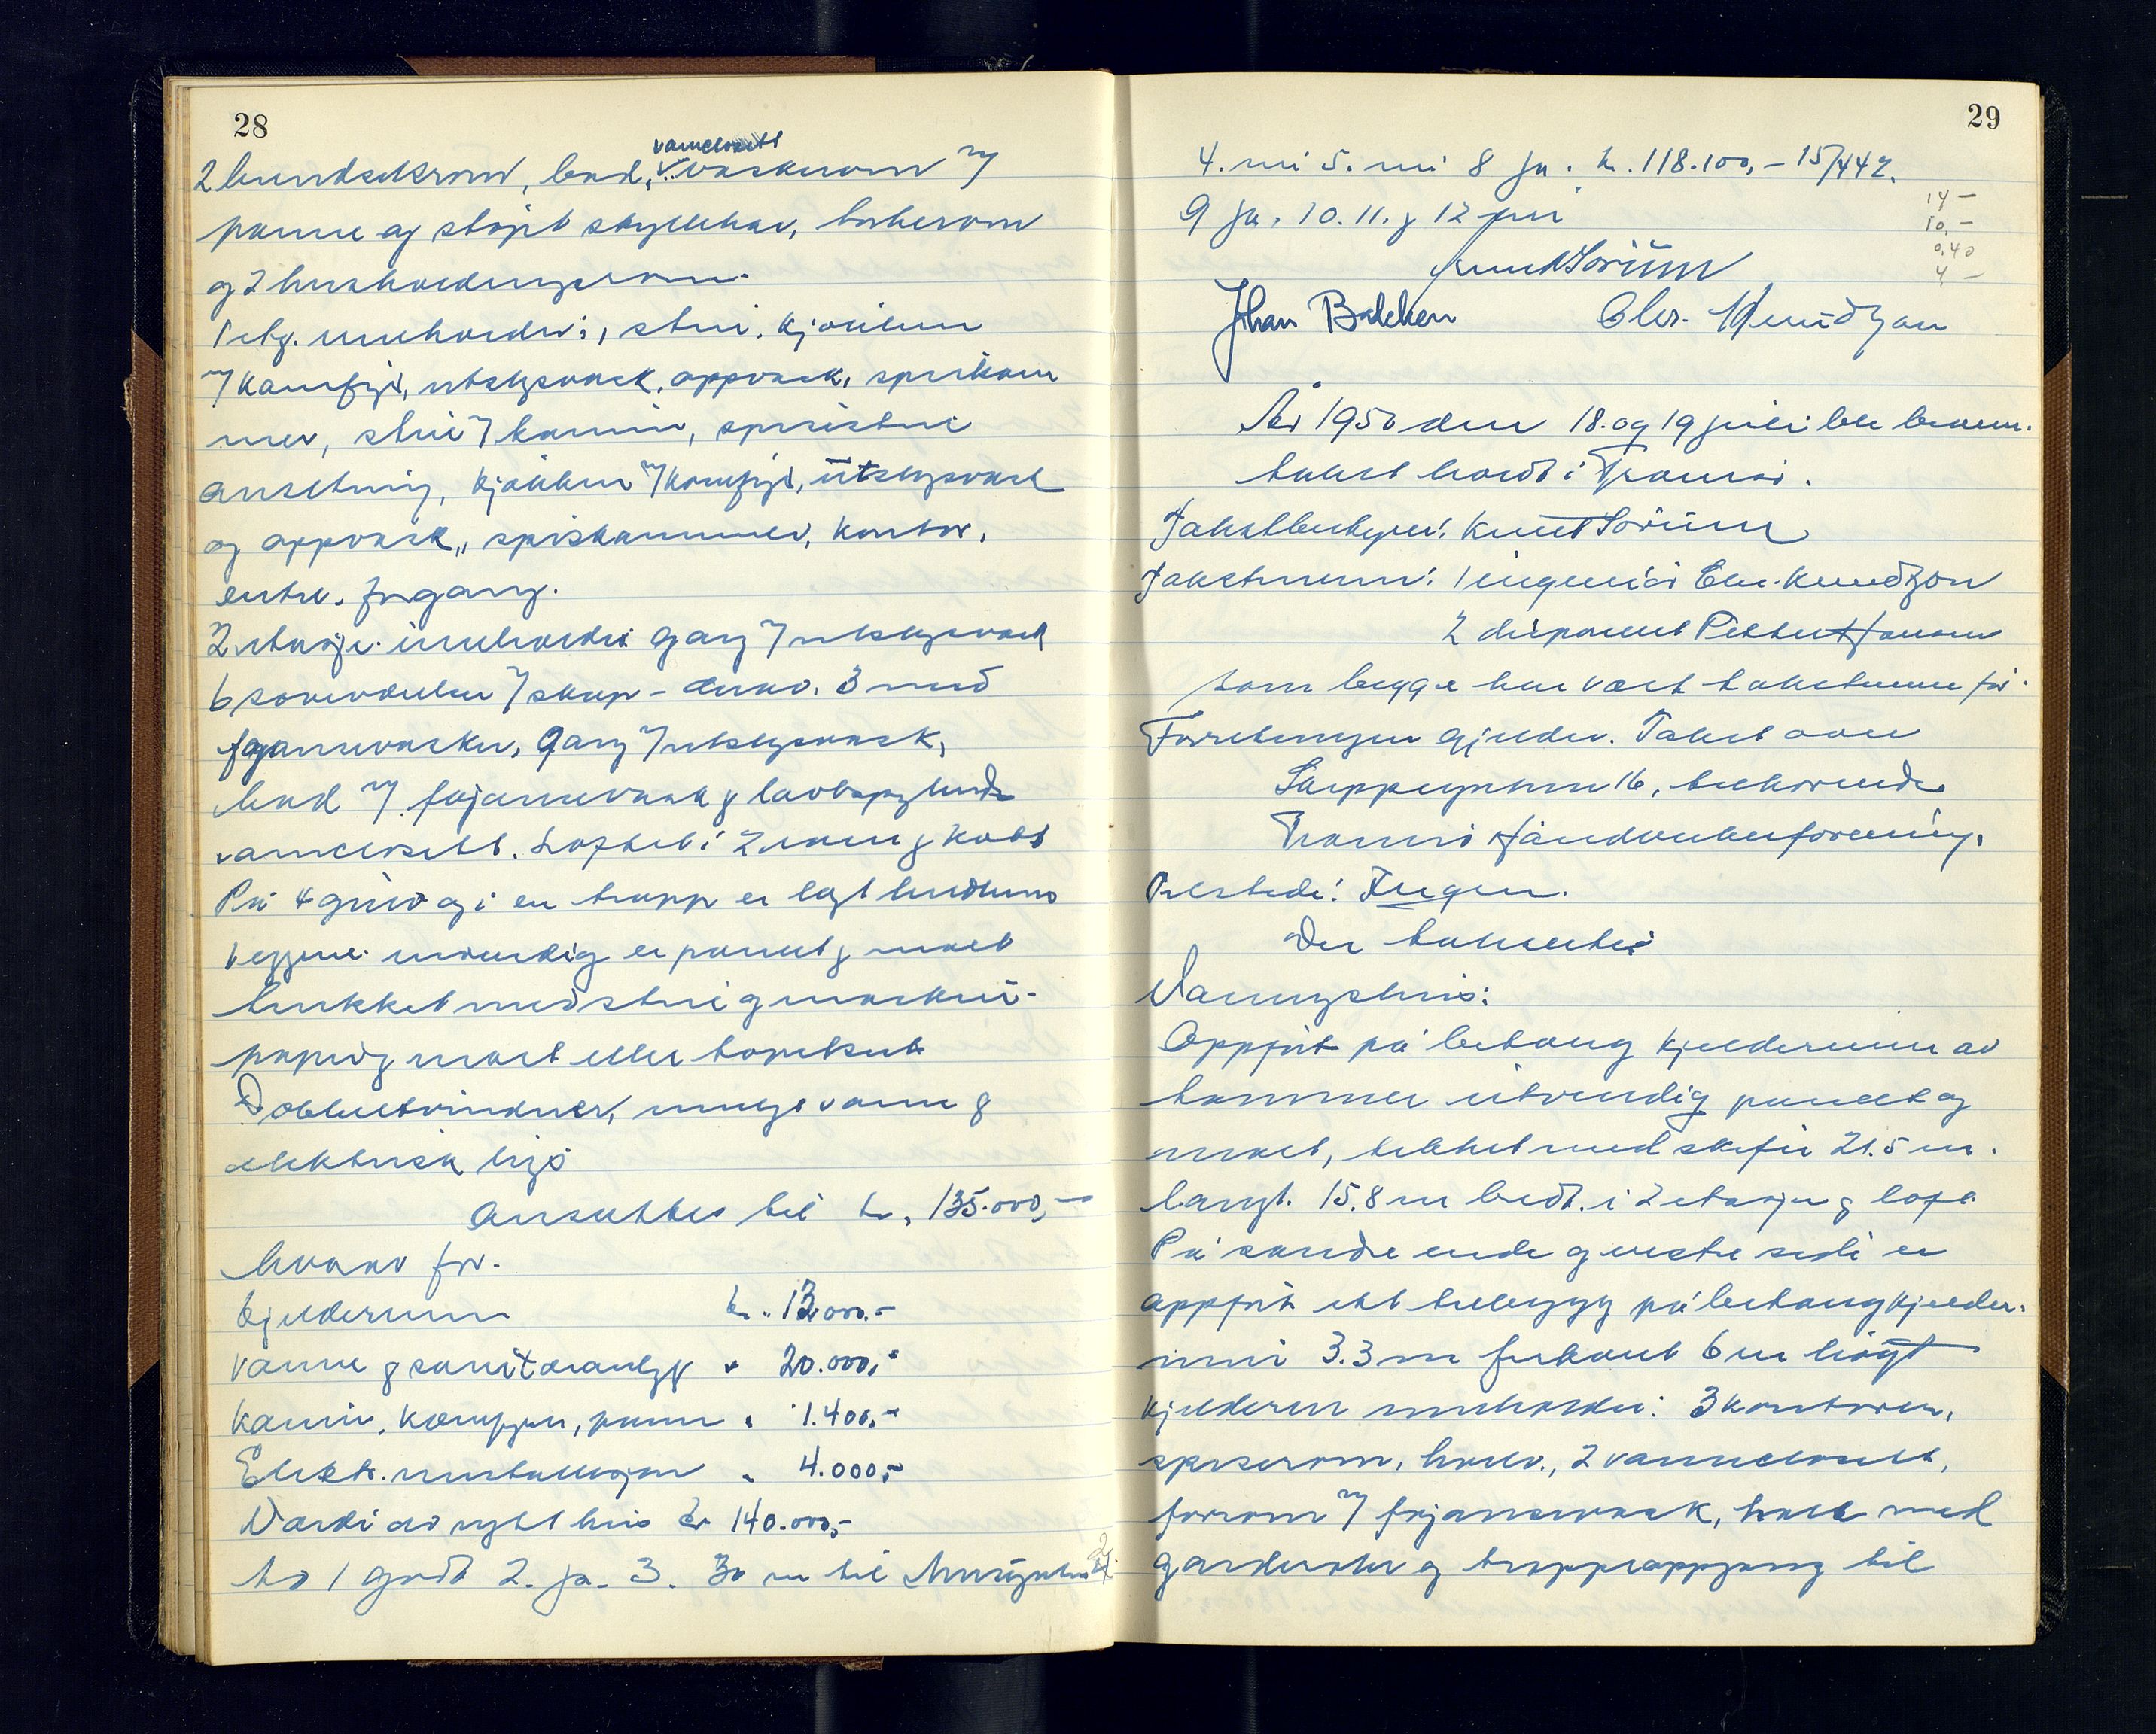 28
vannclosett
2 hundsekrom, bad, vaskerom m/
panne og støpt skyllekar, boherom
og 2 husholdningsrom.
1 etg. inneholder: 1 stue. kjøkken
m/ komfyr, utslgsvask, oppvask, spiskam
mer, stue m/ kamin, spisestue
anretning, kjøkken m/ komfyr, utslgsvask
og oppvask, spiskammer, kontor,
entre, forgang.
2 etasje inneholder gang m/ utslgsvask
6 soveværelser m/ skap - derav 3 med
fajansevasker, Gang m/ utslgsvask,
bad m/ fajansevask og lavtspylende
vannclosett. Loftet i 2 rom og kott
På 4 gulv og i en trapp er lagt linoleum
veggene innvendig er panelt og malt
trukket med strie og maskin-
papir og malt eller tapetsert
Dobbeltvinduer, innlagt vann og
elektrisk lys
Ansettes til kr. 135.000,-
hvorav for.
kjeldermur kr. 13.000.-
vann og sanitæranlegg " 20.000,-
kamin, komfyrer, panne " 1.400,-
Elektr. installasjon " 4.000,-
Verdi av nytt hus kr 140.000,-
Ad 1 godt 2. ja. 3. 30 m til
29
4. nei 5. nei 8 ja. kr. 118.100,- 15/442.
9 ja. 10. 11. og 12 nei
14 -
10,-
0,40
4 -
Knut Sørum
Johan Bakken Chr. Knudtzon
År 1950 den 18. og 19 juli ble brann-
takst holdt i Tromsø.
Takstbestyrer: Knut Sørum
Takstmenn: 1 ingeniør Chr. Knudtzon
2 disponent Petter Hansen
som begge har vært takstmenn før.
Forretningen gjelder. Takst over
Skippergaten 16, tilhørende
Tromsø Håndverkerforening.
Tilstede: Ingen.
Der takseertes
Vaningshus:
Oppført på betong kjeldermur av
tømmer utvendig panelt og
malt, tekket med skifer 21.5 m.
langt. 15.8 m bredt. i 2 etasjer og loft
På søndre ende og vestre side er
oppført ett tilbygg på betongkjelder-
mur 3.3 m firkant 6 m høgt
Kjelderen inneholder: 3 kontorer,
spiserom, hvelv., 2 vannclosett,
forrom m/ fajansevask, hall med
garderobe og trappeoppgang til